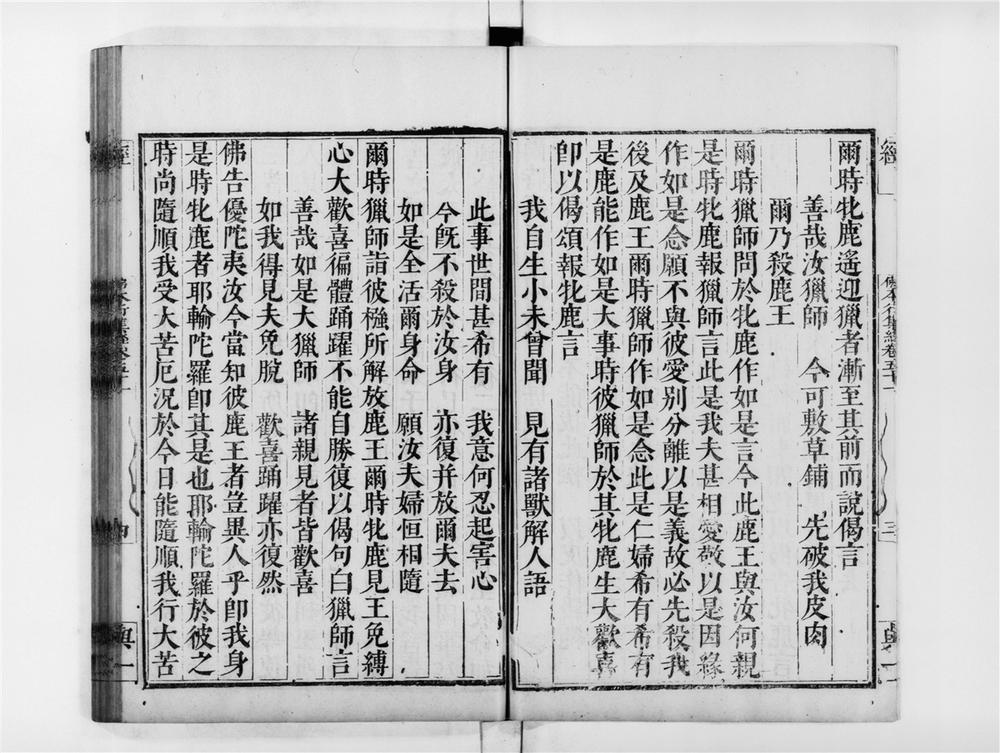 爾時牝鹿遙迎獵者漸至其前而說偈言
善哉汝獵師　今可敷草鋪　先破我皮肉
爾乃殺鹿王
爾時獵師問於牝鹿作如是言今此鹿王與汝何親
是時牝鹿報獵師言此是我夫甚相愛敬以是因緣
作如是念願不與彼愛別分離以是義故必先殺我
後及鹿王爾時獵師作如是念此是仁婦希有希有
是鹿能作如是大事時彼獵師於其牝鹿生大歡喜
卽以偈頌報牝鹿言
我自生小未曾聞　見有諸獸解人語
此事世間甚希有　我意何忍起害心
今旣不殺於汝身　亦復幷放爾夫去
如是全活爾身命　願汝夫婦恒相隨
爾時獵師詣彼𣝅所解放鹿王爾時牝鹿見王免縛
心大歡喜徧體踊躍不能自勝復以偈句白獵師言
善哉如是大獵師　諸親見者皆歡喜
如我得見夫免脫　歡喜踊躍亦復然
佛告優陀夷汝今當知彼鹿王者豈異人乎卽我身
是時牝鹿者耶輸陀羅卽其是也耶輸陀羅於彼之
時尚隨順我受大苦厄況於今日能隨順我行大苦